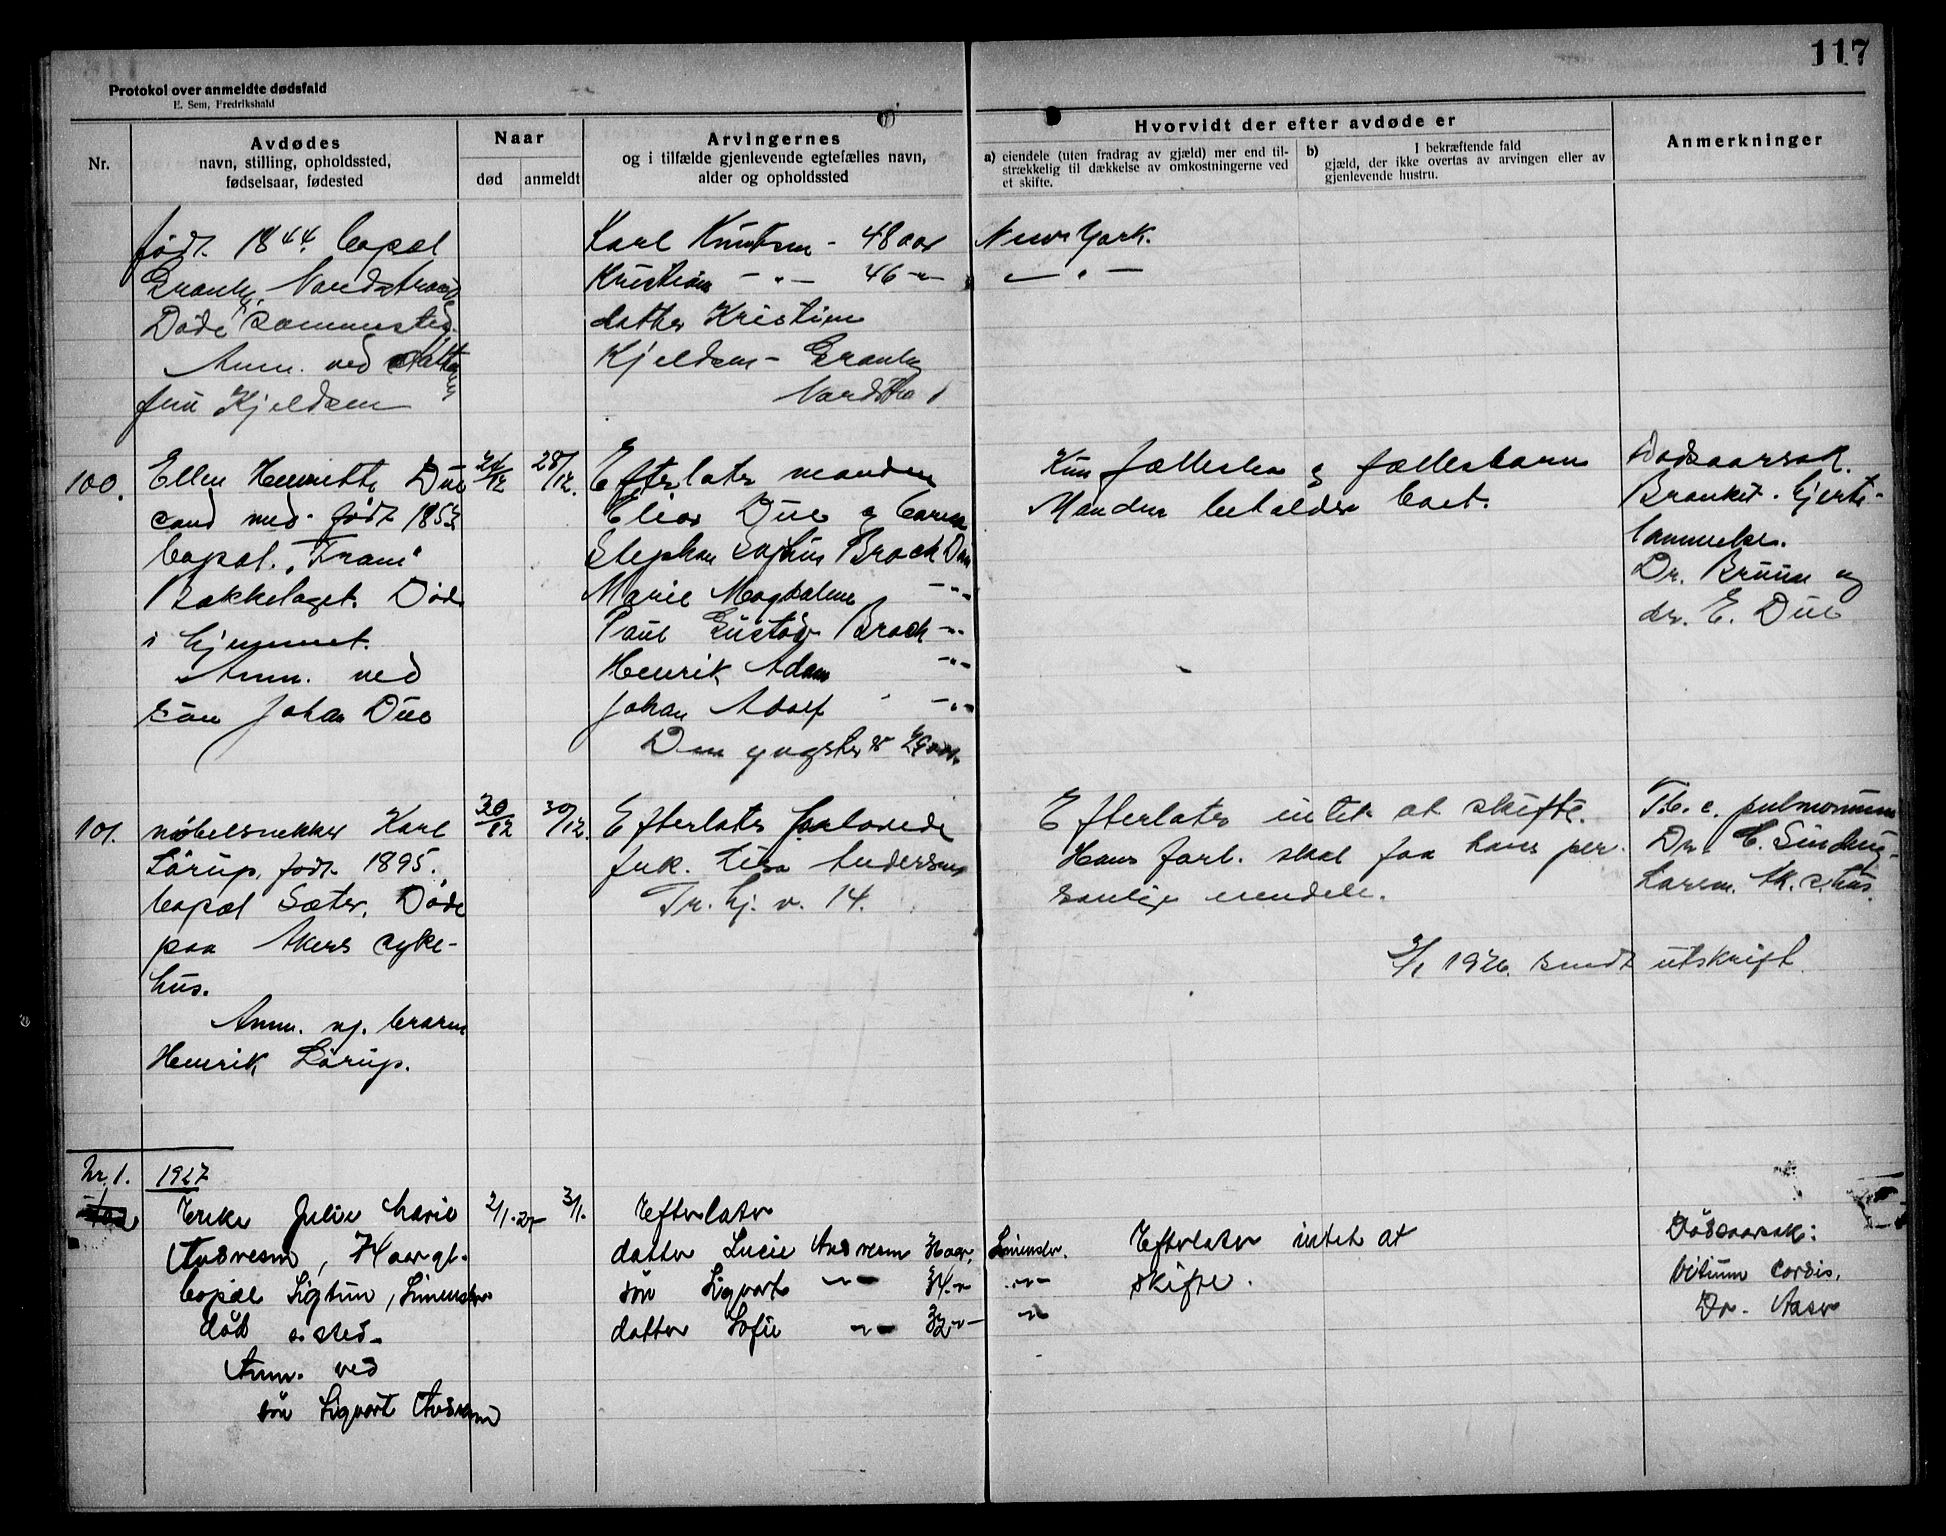 117
Protokol over anmeldte dødsfald
E. Sem, Fredrikshald
Nr.
Avdødes
navn, stilling, opholdssted,
fødselsaar, fødested
Naar
død
anmeldt
Arvingernes
og i tilfælde gjenlevende egtefælles navn,
alder og opholdssted
Hvorvidt der efter avdøde er
a) eiendele (uten fradrag av gjæld) mer end til-
strækkelig til dækkelse av omkostningerne ved
et skifte.
b) I bekræftende fald
gjæld, der ikke overtas av arvingen eller av
gjenlevende hustru.
Anmerkninger
født 1844. bopæl
Granly, Nordstrand
Døde sammested.
Anm. ved datter
fru Kjeldsen
Karl Knutsen - 48 aar New York.
Kristian - " - 46 - " - " -
datter Kristine
Kjeldsen - Granly
Nordstra d
100.
Ellen Henriette Due
cand med. født 1853
bopæl. "Fram"
Bækkelaget. Død
i hjemmet.
Anm. ved
søn Johan Due
24/12
28/12.
Efterlater manden
Elias Due og barna
Stephan Sophus Brock Due
Marie Magdalene - " -
Paul Gustav Brock - " -
Henrik Adam - " -
Johan Adolf - " -
Den yngste er 29 aar.
Kun fælleseie og fællesbarn
Manden beholder boet.
Dødsaarsak.
Bronkit. hjerte-
lammelse.
Dr. Bruun og
dr. E. Due
101.
møbelsnekker Karl
Lørup, født 1895.
bopæl Sæter, Døde
paa Akers syke-
hus.
Anm. av broren
Henrik Lørup.
30/12
30/12.
Efterlater forlovede
frk. Lisa Andersen
Tr. hj. v. 14.
Efterlater intet at skifte.
Hans forl. skal faa hans per-
sonlige eiendele.
Tb. c. pulmonum
Dr. C. Sinding-
Larsen. Ak. s. hus.
3/1 1926. sendt utskrift.
Nr. 1.
1927
Julie Marie
Andresen, 74 aar gl.
bopæl Sigtun, Simensbr.
død s. sted.
Anm. ved
søn Sigvart Andresen
2/1.27
3/1.
Efterlater
datter Lucie Andresen aar, Simensbr.
søn Sigvart - " - 34 - " - " -
datter Sofie - " - 32 - " - " -
Efterlater intet at
skifte.
Dødsaarsak:
Vitium cordis.
Dr. Aaser